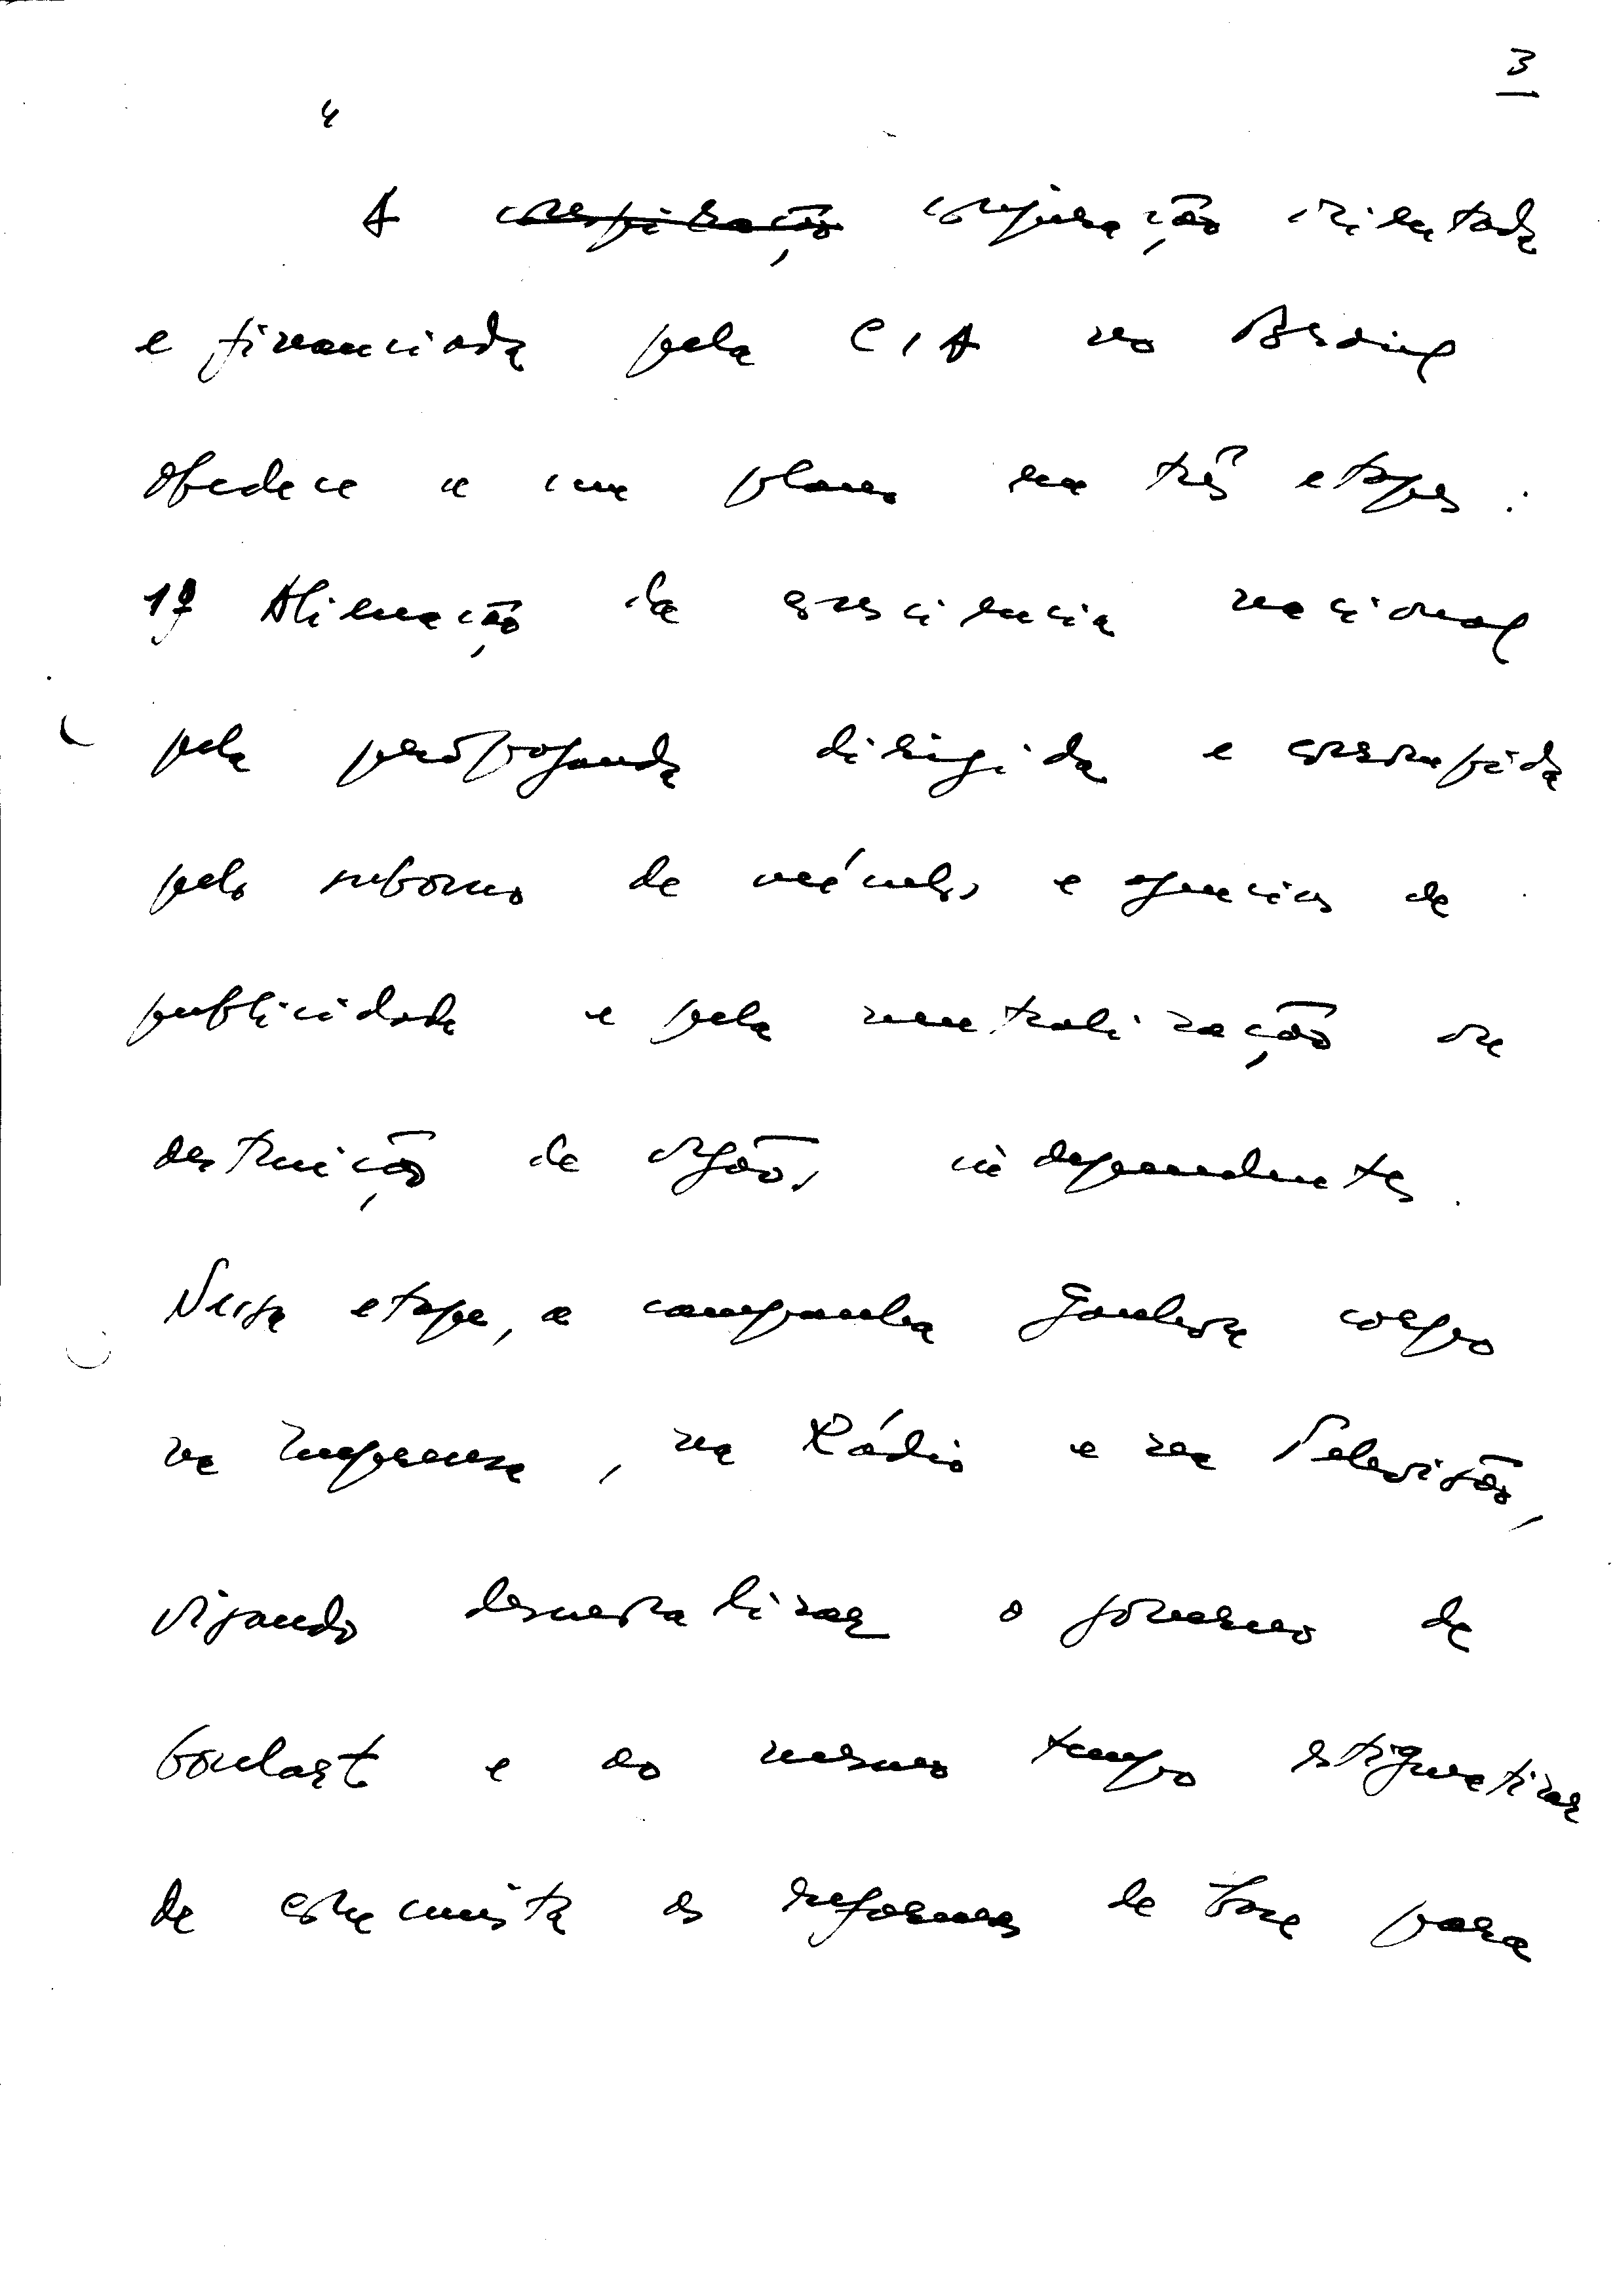 3
4
A ~~conspiração~~ conjuração orientada
e financiada pela CIA no Brasil
obedece a um plano em três etapas:
1ª Alienação da consciencia nacional
pela propaganda dirigida e corrompida
pelo suborno de veículos e agencias de
publicidade e pela neutralização ou
destruição de orgãos independentes.
Nessa etapa, a campanha ganhou corpo
na Imprensa, na Rádio e na Televisão,
visando desmoralizar o governo de
Goulart e ao mesmo tempo estigmatizar
de comunista as reformas de base para